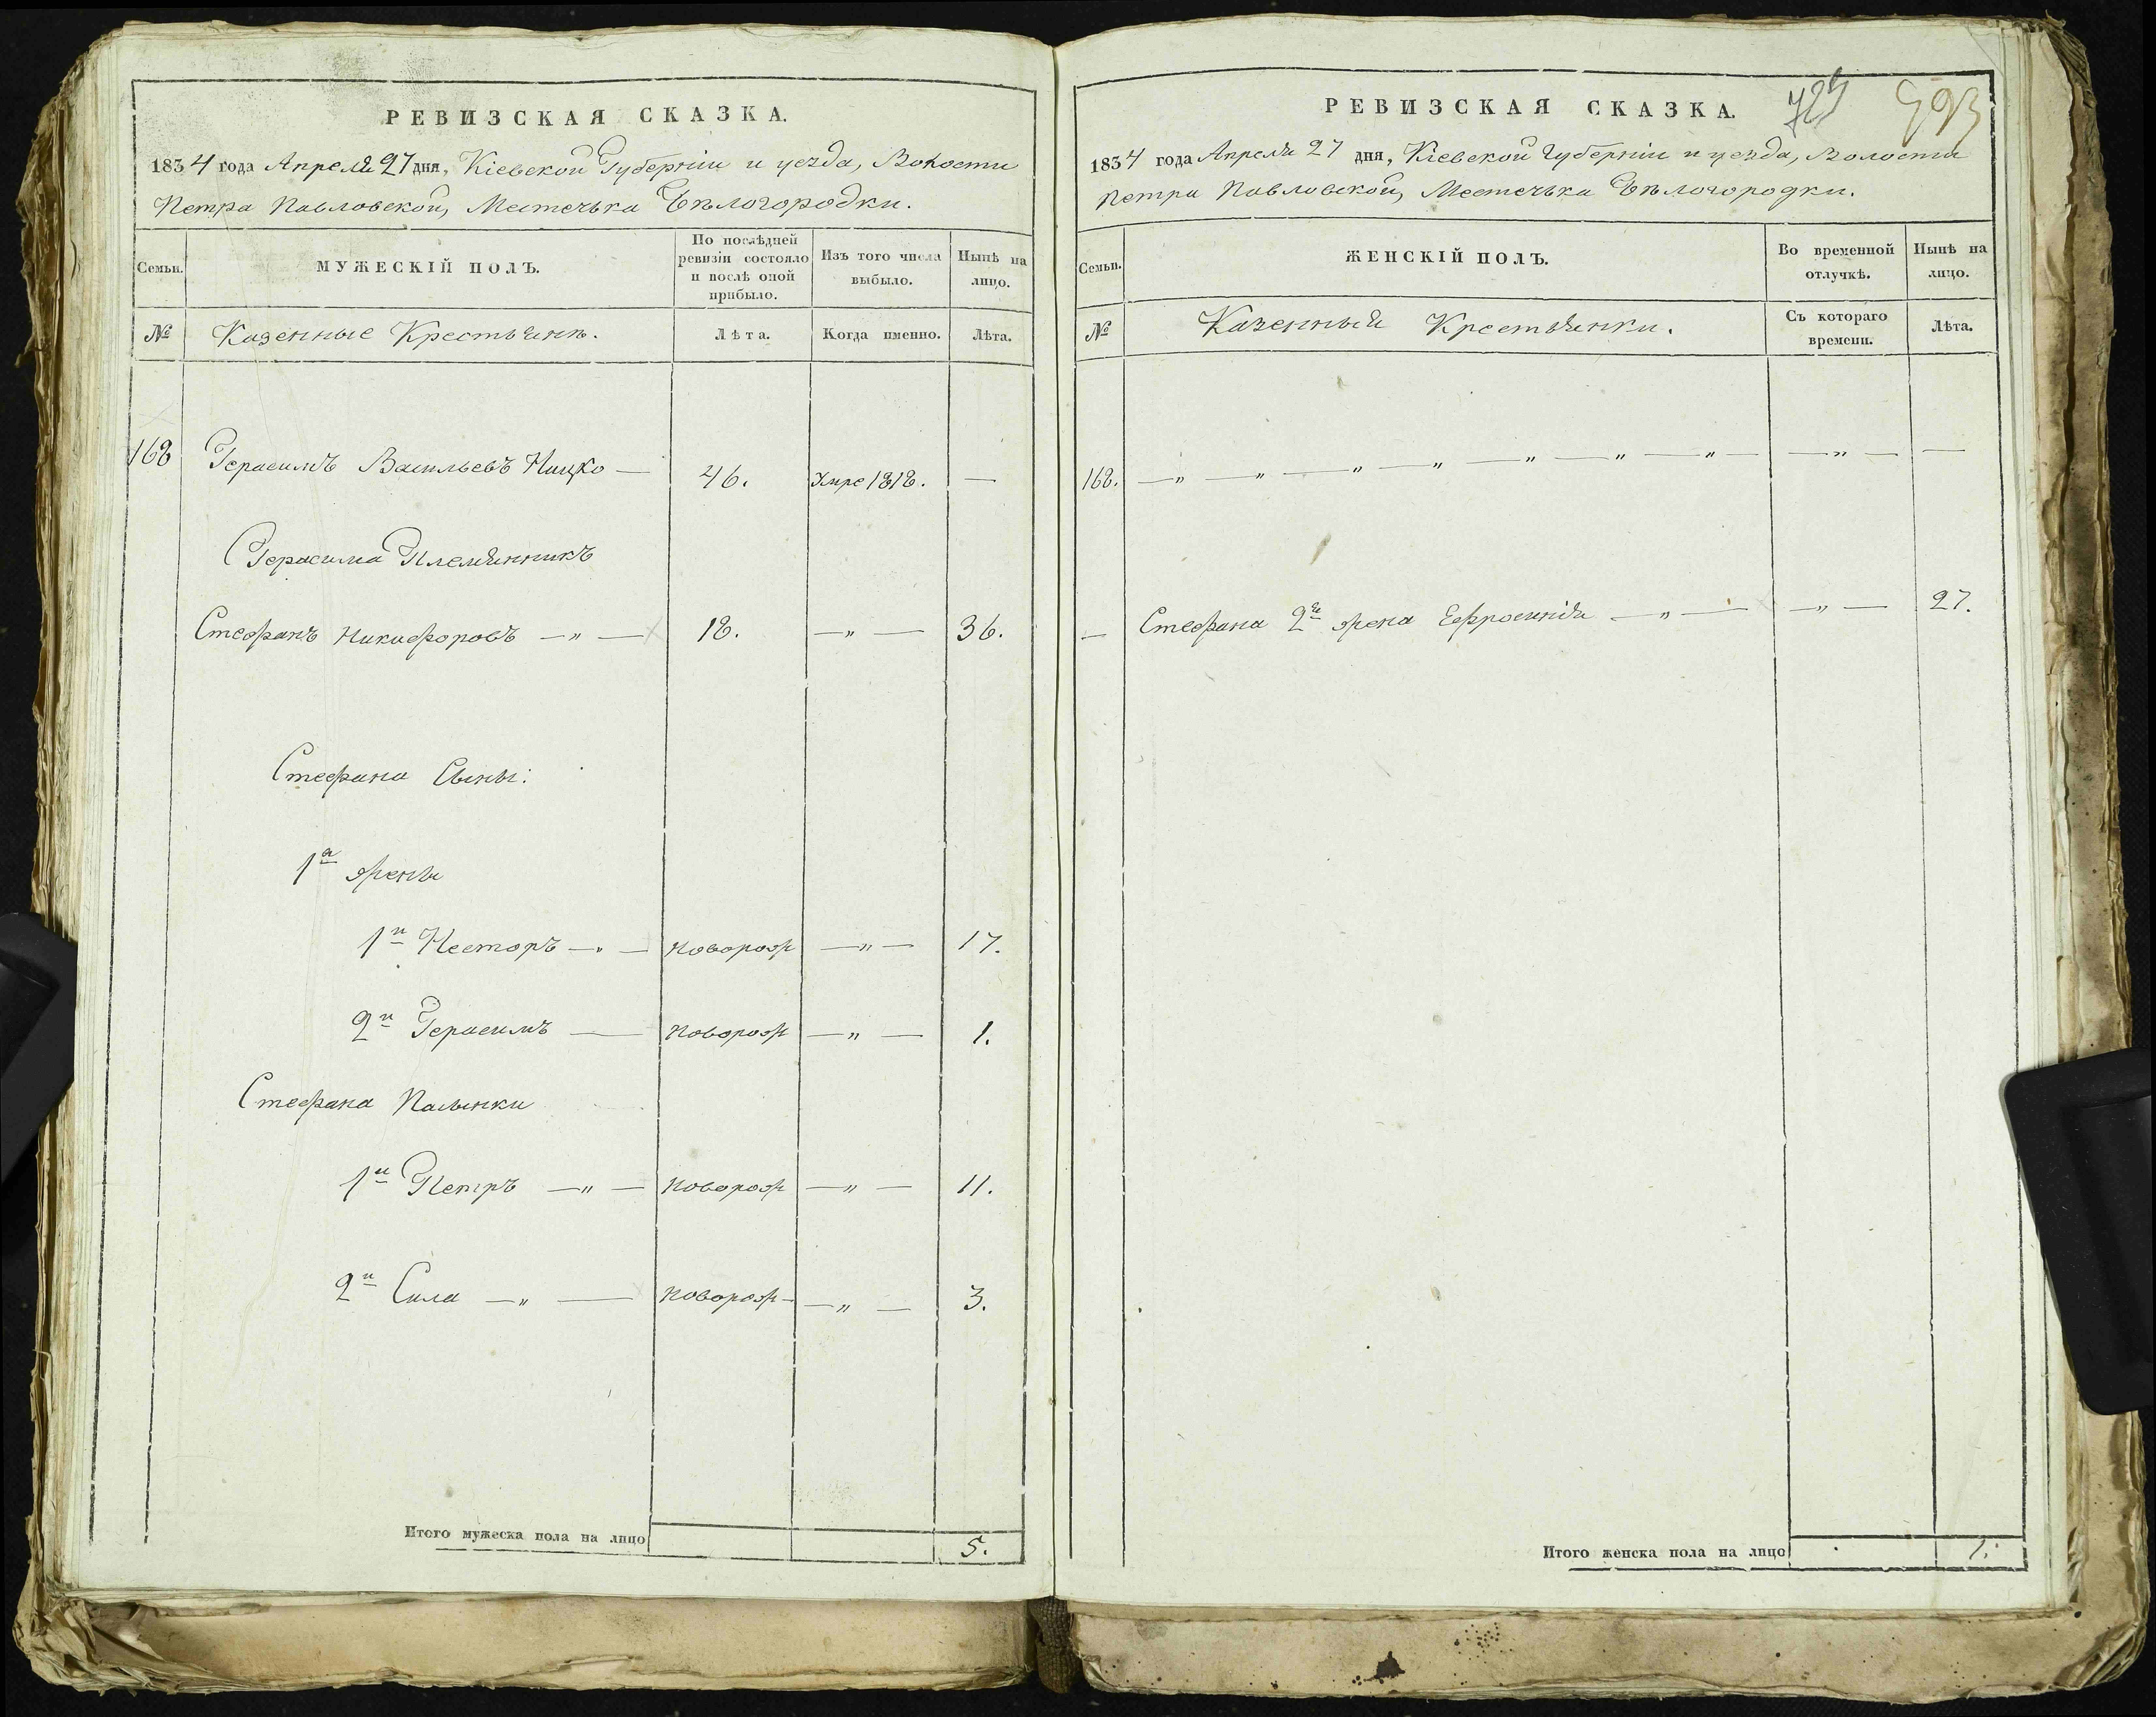 РЕВИЗСКАЯ СКАЗКА.
1834 года Апреля 27 дня, Кіевской Губерніи и уезда, Волости
Петра Павловской, Местечька Бѣлогородки.
Семьи.
МУЖЕСКІЙ ПОЛЪ.
По послѣдней ревизіи состояло и послѣ оной прибыло.
Изъ того числа выбыло.
Нынѣ на лицо.
№
Казенные Крестьяне.
Лѣта.
Когда именно.
Лѣта.
168 Герасимъ Васильевъ Ницко — 46. Умре 1818. —
Герасима Племянникъ
Стефанъ Никифоровъ — „ — 18. — „ — 36.
Стефана Сыны:
1й жены
1й Несторъ — „ — новорож — „ — 17.
2й Герасимъ — новорож — „ — 1.
Стефана Пасынки
1й Петръ — „ — новорож — „ — 11.
2й Сила — „ — новорож — „ — 3.
Итого мужеска пола на лицо 5.
РЕВИЗСКАЯ СКАЗКА.
593
1834 года Апреля 27 дня, Кіевской Губерніи и уезда, Волости
Петра Павловской, Местечька Бѣлогородки.
Семьи.
ЖЕНСКІЙ ПОЛЪ.
Во временной отлучкѣ.
Нынѣ на лицо.
№
Казенныя Крестьянки.
Съ котораго времени.
Лѣта.
168. — „ — „ — „ — „ — „ — „ — „ — — „ — —
— Стефана 2я жена Ефросинія — „ — — „ — 27.
Итого женска пола на лицо 1.